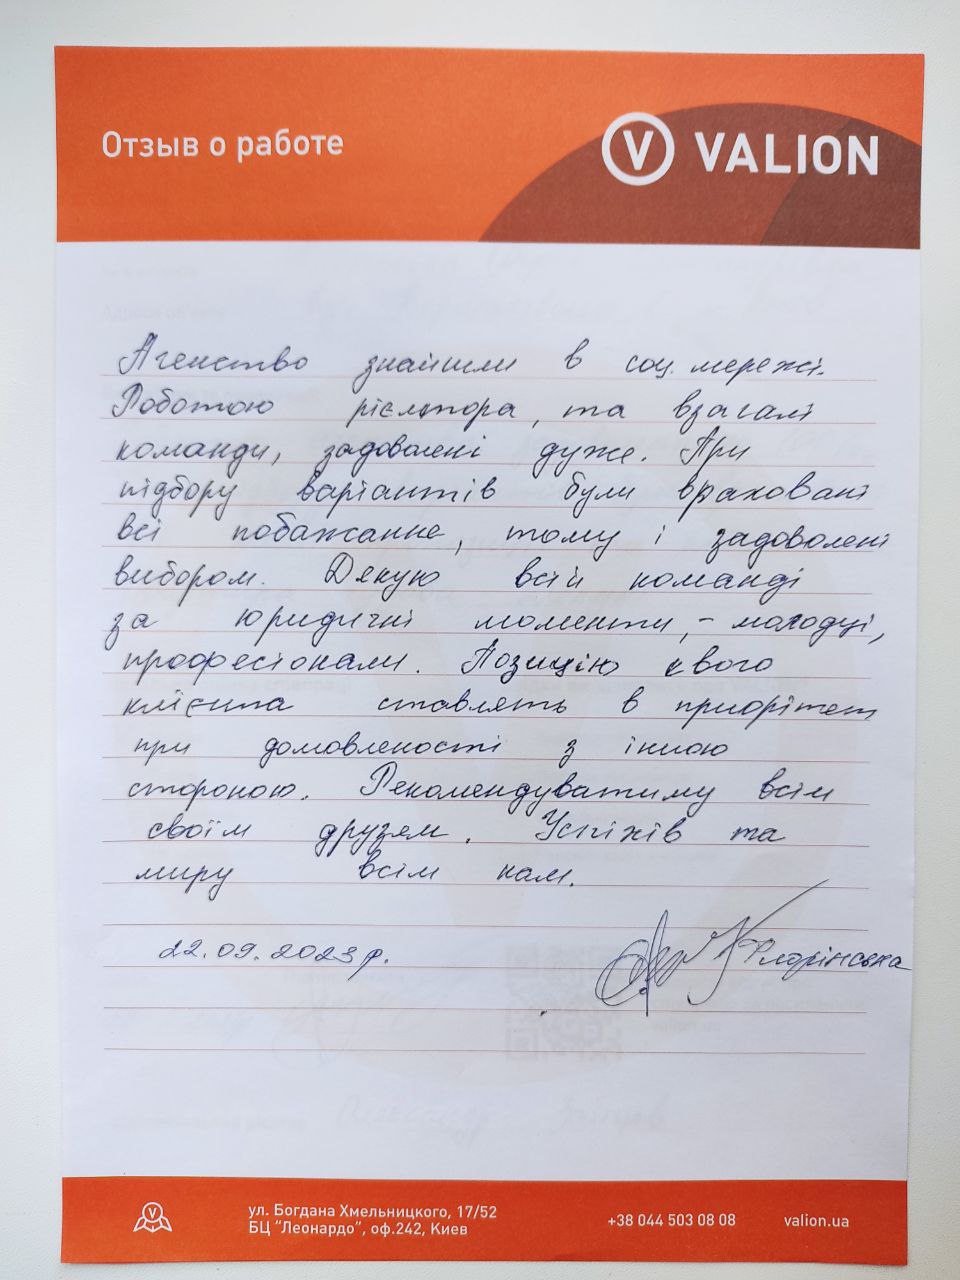 Отзыв о работе
VALION
Агенство знайшли в соц. мережі.
Роботою рієлтора, та взагалі
команди, задоволені дуже. При
підбору варіантів були враховані
всі побажання, тому і задоволені
вибором. Дякую всій команді
за юридичні моменти, - молодці,
професіонали. Позицію свого
клієнта ставлять в приорітет
при домовленості з іншою
стороною. Рекомендуватиму всім
своїм друзям. Успіхів та
миру всім нам.
22.09.2023 р.
Флорінська
ул. Богдана Хмельницкого, 17/52
БЦ "Леонардо", оф.242, Киев
+38 044 503 08 08
valion.ua